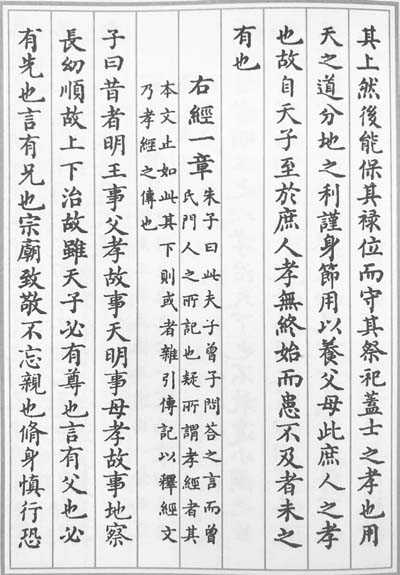 其上然後能保其禄位而守其祭祀蓋士之孝也用
天之道分地之利謹身節用以養父母此庶人之孝
也故自天子至於庶人孝無終始而患不及者未之
有也
右經一章
朱子曰此夫子曾子問荅之言而曾
氏門人之所記也疑所謂孝經者其
本文止如此其下則或者雜引傳記以釋經文
乃孝經之傳也
子曰昔者明王事父孝故事天明事母孝故事地察
長幼順故上下治故雖天子必有尊也言有父也必
有先也言有兄也宗廟致敬不忘親也脩身慎行恐